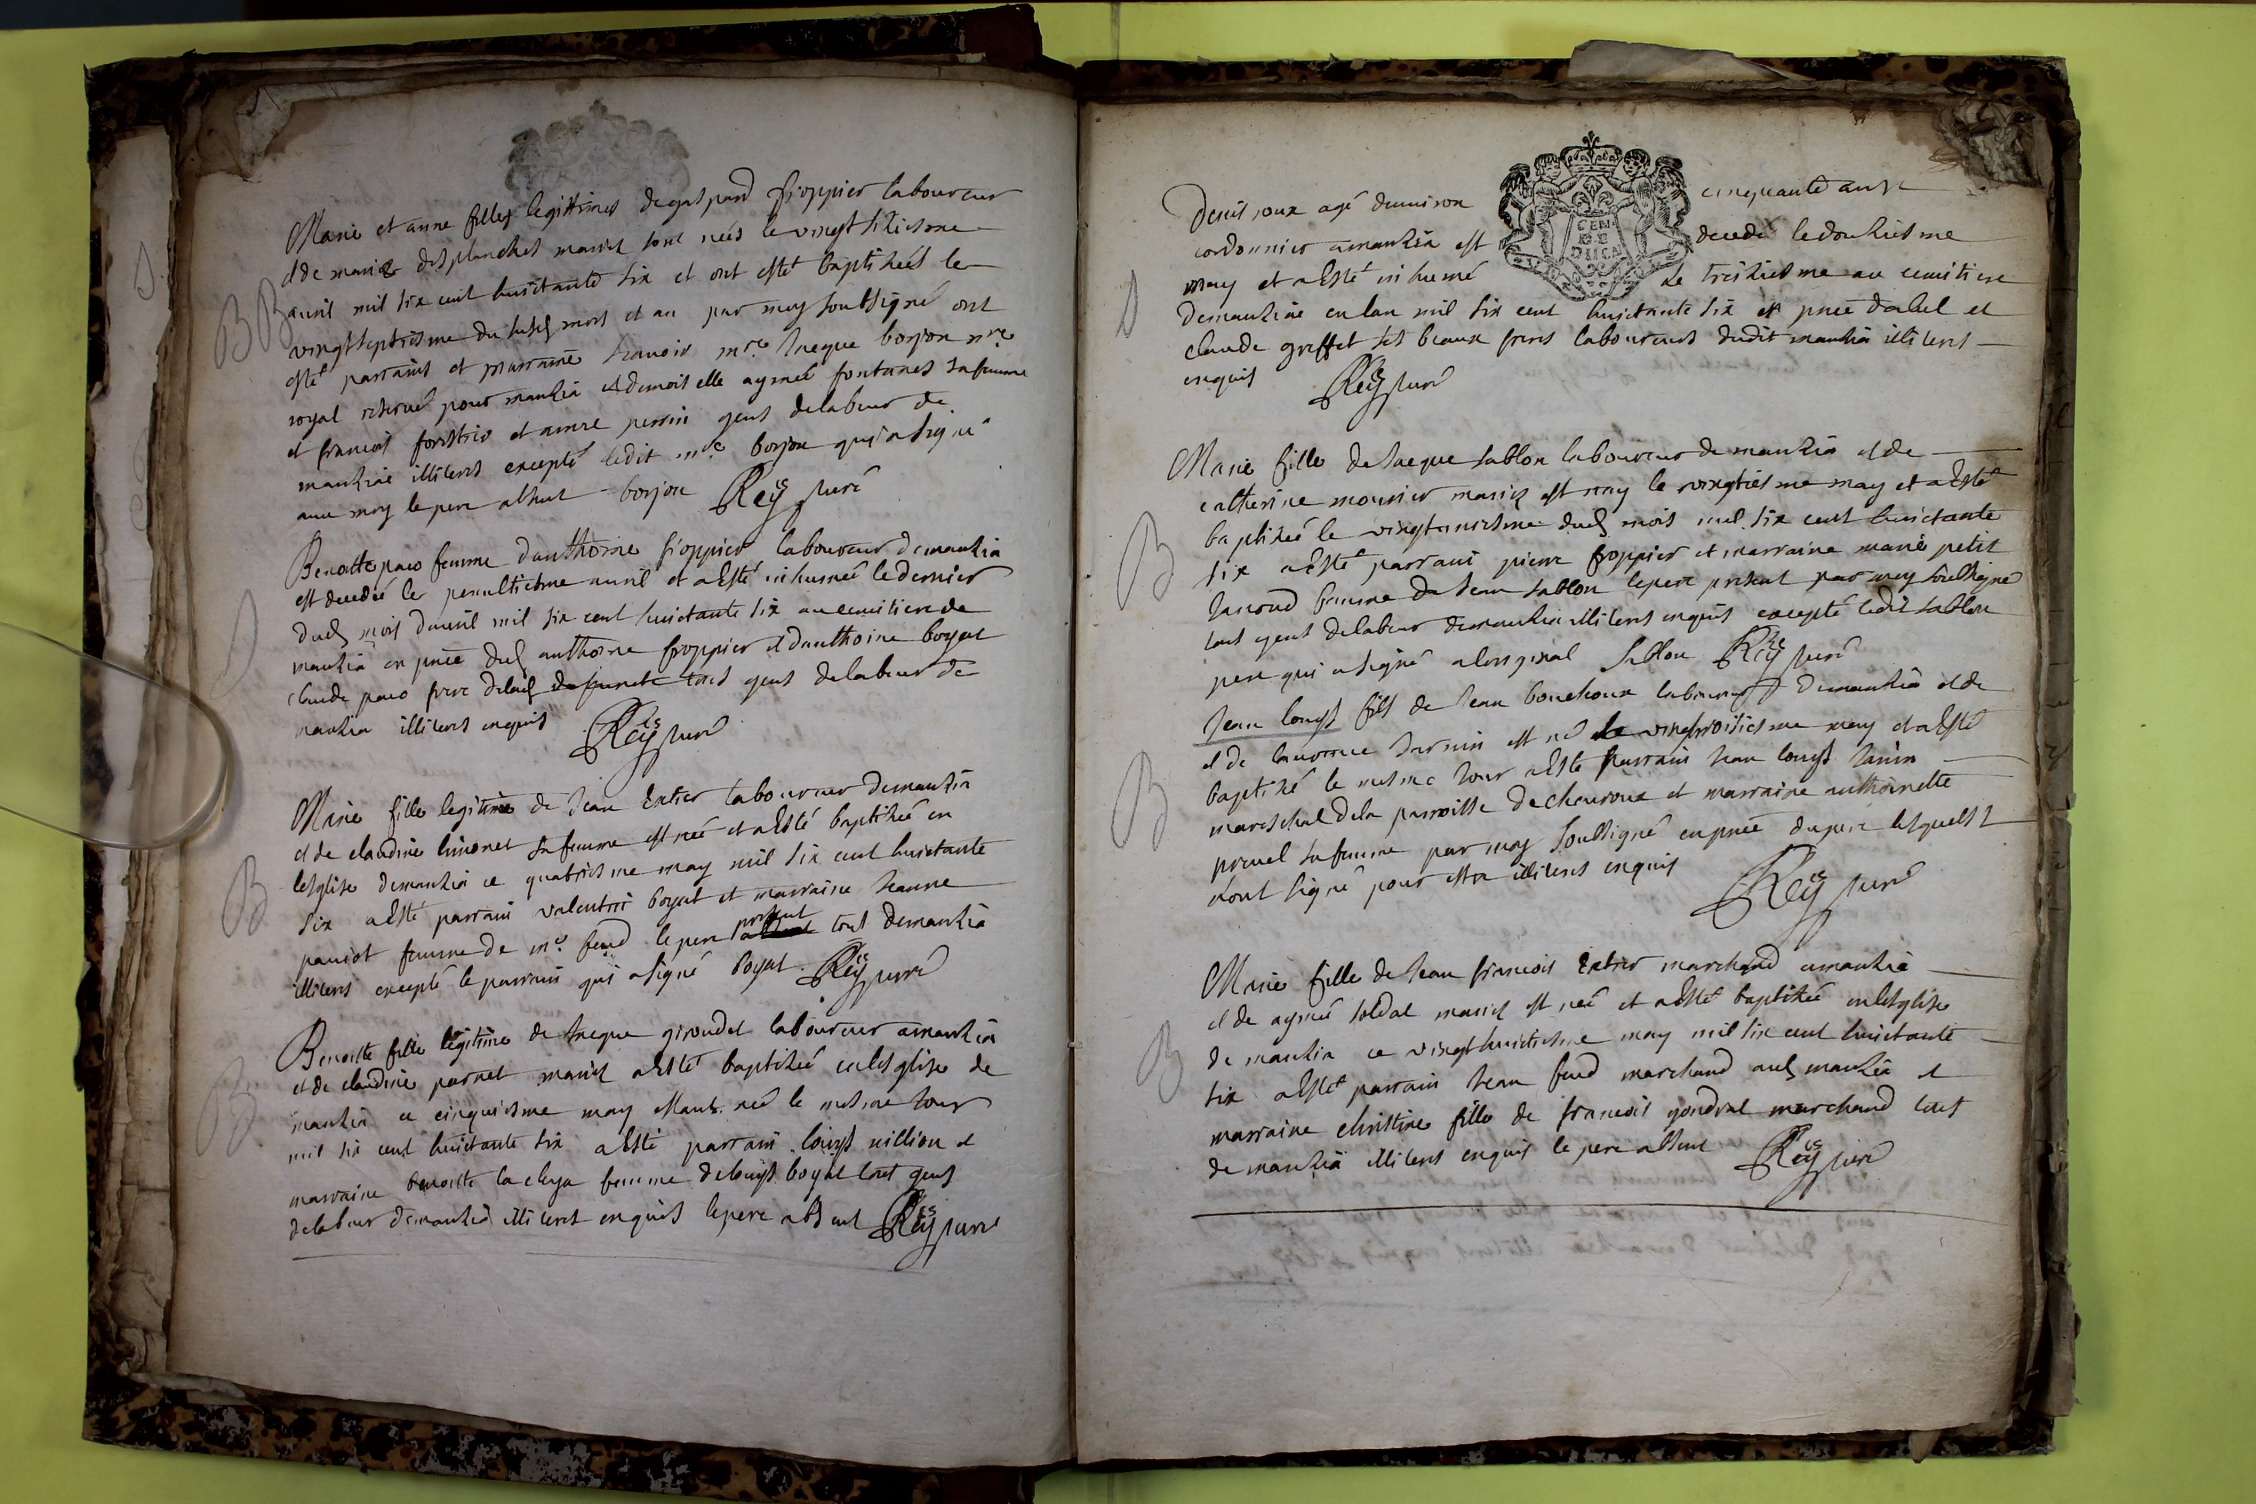 Marie et anne filles legittimes de gaspard froppier laboureur
et de marie desplanches mariés sont nées le vingt sixiesme
avril mil six cent huictante six et ont esté baptizées le
vingtseptiesme dudit mois et an par moy soubsigné ont
esté parrains et marraine scavoir mre. Jacque borjon nre.
royal reservé pour manzia et demoiselle aymée fontanes sa femme
et francois et anne perrin gens de labeur de
manziat illiterés excepté ledit mre. borjon qui a signé
avec moy le pere absent borjon Reÿ curé
Benoitte paco femme d'anthoine froppier laboureur de manzia
est decedée le penultiesme avril et a esté inhumée le dernier
dud mois d'avril mil six cent huictante six au cemitiere de
manzia en pnce dud anthoine froppier et d'anthoine boyat
claude paco frere de lad defuncte tous gens de labeur de
manzia illiterés enquis Reÿ curé
Marie fille legitime de Jean Extier laboureur de manzia
et de claudine limonet sa femme est née et a esté baptizée en
lesglise de manzia ce quatriesme may mil six cent huictante
six a esté parrain valentin boyat et marraine Jeanne
paucot femme de mre. feud le pere present absent tous de manzia
illiterés excepté le parrain qui a signé boyat Reÿ curé
Benoitte fille legitime de Jacque giroudet laboureur a manzia
et de claudine parnet mariés a esté baptizée en lesglise de
manzia ce cinquiesme may estant née le mesme Jour
mil six cent huictante six a esté parrain louys nillion et
marraine benoitte la claya femme de louys boyat tous gens
de labeur de manzia illiterés enquis le pere absent Reÿ curé
Denis roux agé d'environ cinquante ans
cordonnier a manzia est decedé le douziesme
may et a esté inhumé le treiziesme au cemitiere
de manzia en lan mil six cent huictante six et pnce d'abel et
claude greffet ses beaux freres laboureurs dudit manzia illiterés
enquis Reÿ curé
Marie fille de Jacque sablon laboureur de manzia et de
catherine mounier mariés est née le vingtiesme may et a esté
baptizée le vingtuniesme dud mois mil six cent huictante
six a esté parrain pierre froppier et marraine marie petit
Janoud femme de Jean sablon le pere present par moy soubsigné
tous gens de labeur de manzia illiterés enquis excepté ledit sablon
pere qui a signé a loriginal Sablon Reÿ curé
Jean louys fils de Jean bouchoux laboureur de manzia et de
et de laurence Jarnin est né le vingtroisiesme may et a esté
baptizé le mesme Jour a esté parrain Jean louys Janin
mareschal de la parroisse de chevroux et marraine anthoinette
pruel sa femme par moy soubsigné en pnce du pere lesquels
n'ont signé pour estre illiterés enquis Reÿ curé
Marie fille de Jean francois Extier marchand a manzia
et de aymée soldat mariés est née et a esté baptizée en lesglise
de manzia ce vingthuictiesme may mil six cent huictante
six a esté parrain Jean feud marchand aud manzia et
marraine christine fille de francois gondrat marchand tous
de manzia illiterés enquis le pere absent Reÿ curé